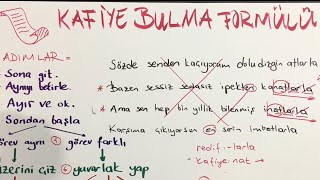 KAFİYE BULMA FORMÜLÜ
ADIMLAR =
Sona git.
Aynıyı belirle.
Ayır ve ok.
Sondan başla
görev aynı
görev farklı
üzerini çiz
yuvarlak yap
Sözde senden kaçıyorum doludizgin atlarla
Bazen sessiz sedasız ipekten kanatlarla
Ama sen hep bin yıllık bilenmiş inatlarla
Karşıma çıkıyorsun en serin imbatlarla
redif - larla
Kafiye: nat →